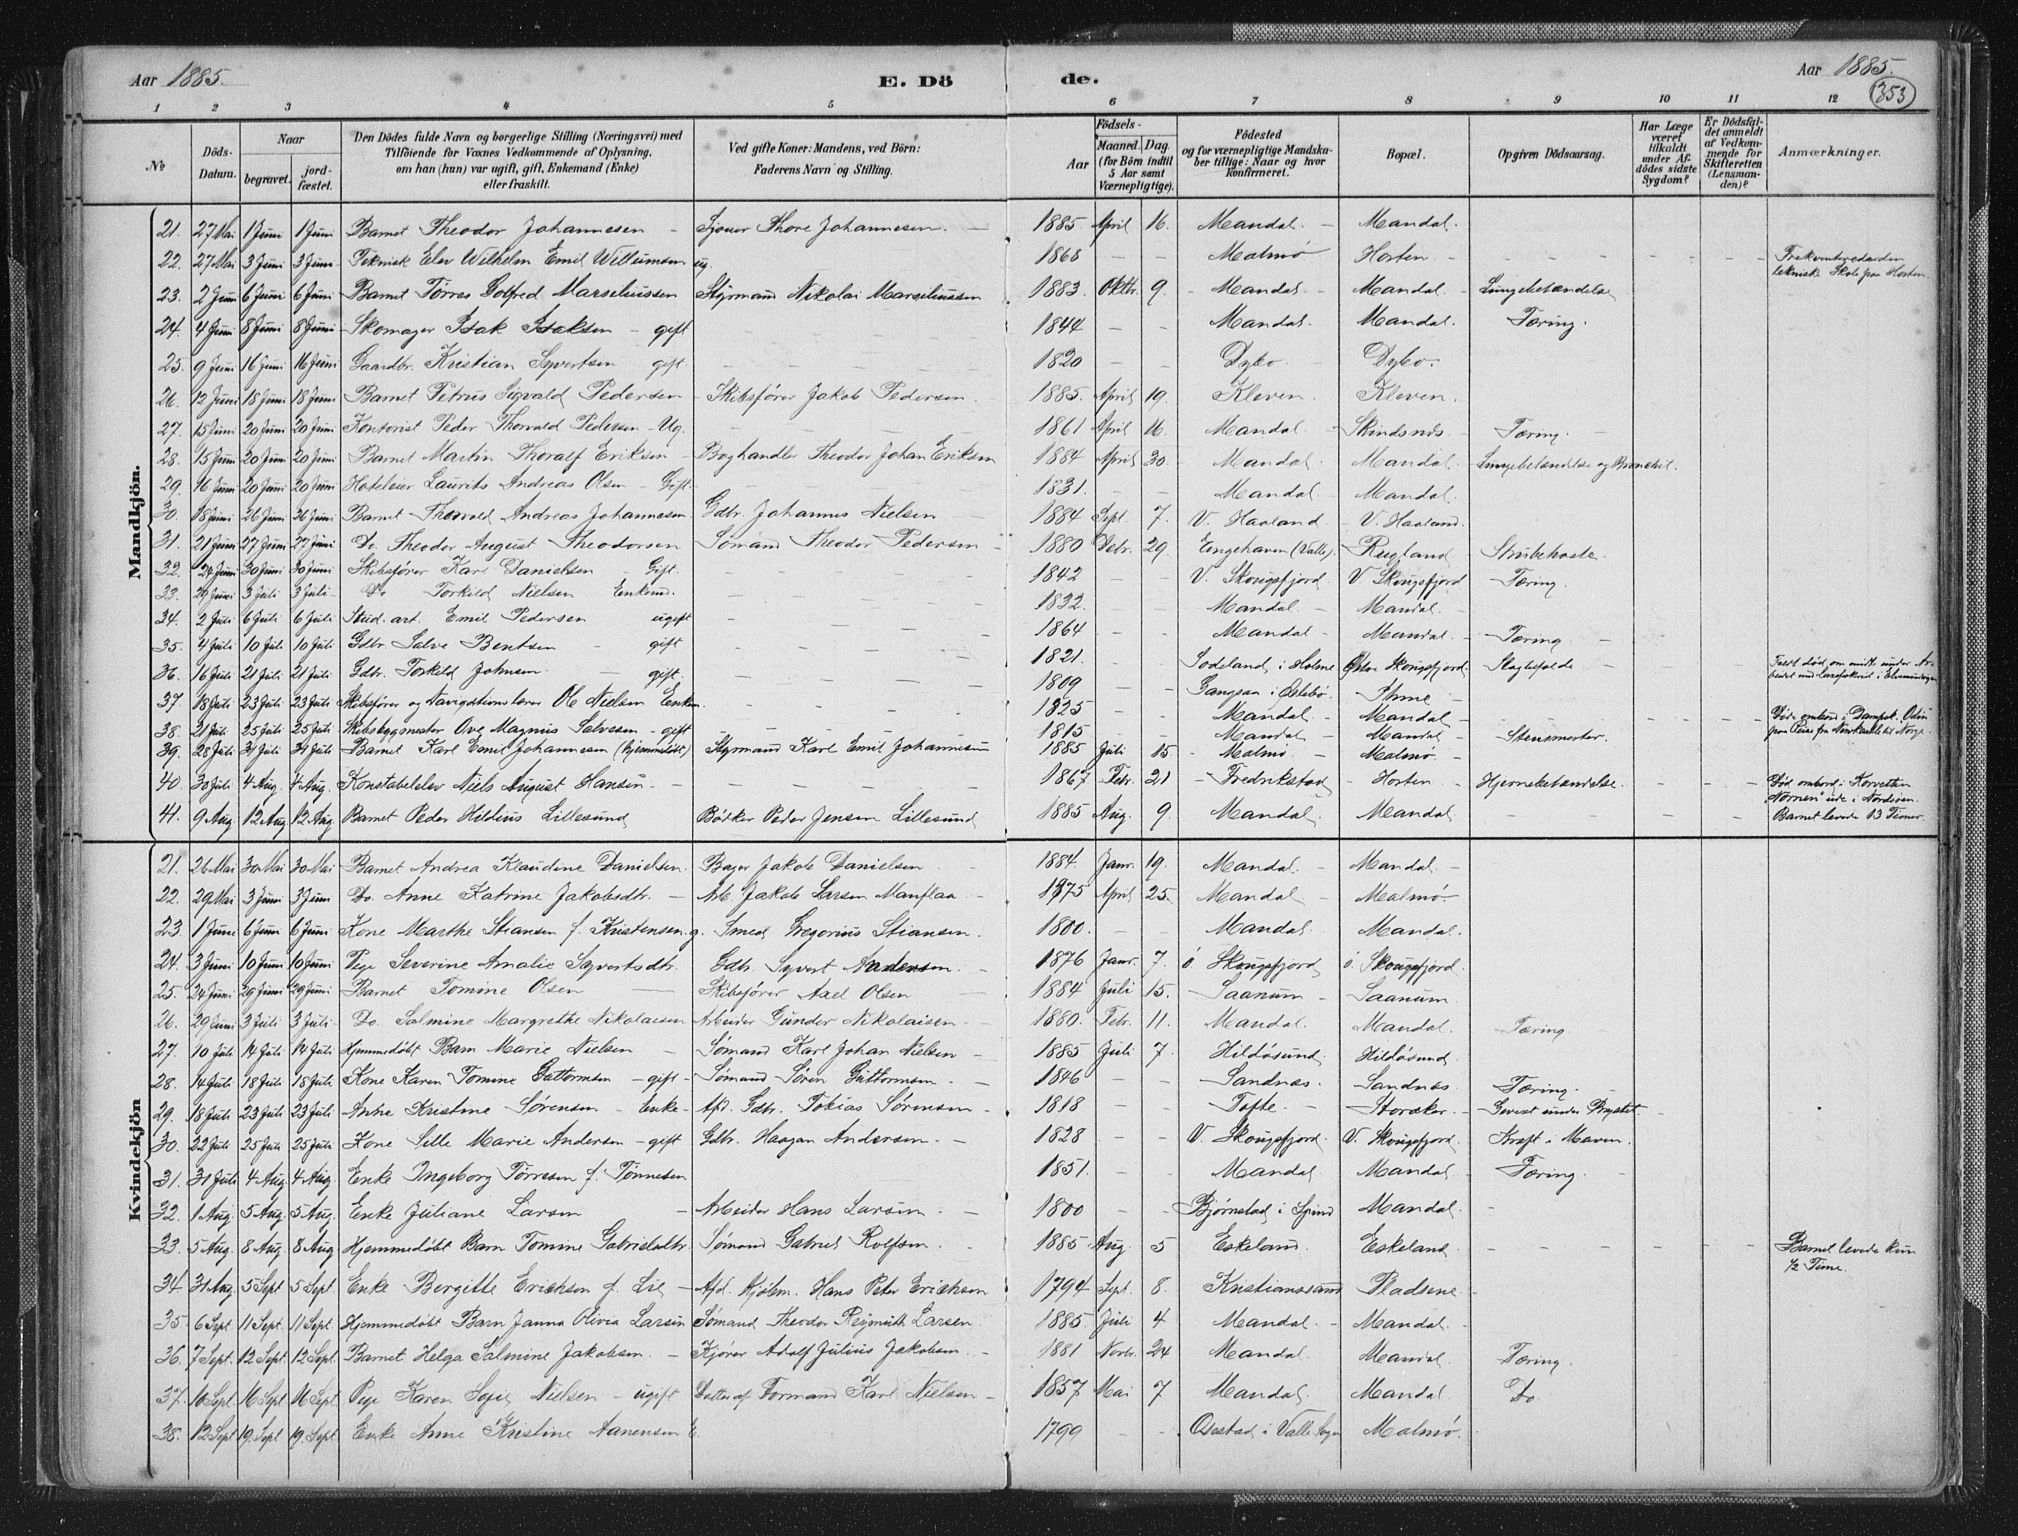 Aar 1885. E. Dö de. Aar 1885.
353
1 2 3 4 5 6 7 8 9 10 11 12
No Döds-Datum. Naar begravet. jord-fæstet. Den Dödes fulde Navn og borgerlige Stilling (Næringsvei) med Tilföiende for Voxnes Vedkommende af Oplysning, om han (hun) var ugift, gift, Enkemand (Enke) eller fraskilt. Ved gifte Koner: Mandens, ved Börn: Faderens Navn og Stilling. Aar Födsels- Maaned. Dag. (for Börn indtil 5 Aar samt Værnepligtige). Födested og for værnepligtige Mandskaber tillige: Naar og hvor konfirmeret. Bopæl. Opgiven Dödsaarsag. Har Læge været tilkaldt under Afdödes sidste Sygdom? Er Dödsfaldet anmeldt af Vedkommende for Skifteretten (Lensmanden)? Anmærkninger.
Mandkjön.
21. 27 Mai 1 Juni 1 Juni Barnet Theodor Johannesen - Thore Johannesen. - 1885 April 16. Mandal. - Mandal.
22. 27 Mai 3 Juni 3 Juni Teknisk Elev Wilhelm Emil Willumsen ug. 1868 - - Malmø Horten - - - - Frekventerede den tekniske Skole paa Horten.
23. 2 Juni 6 Juni 6 Juni Barnet Tørres Golfred Marseliussen Styrmand Nikolai Marseliussen 1883. Oktbr. 9. - Mandal - Mandal - Lungebetændelse
24. 4 Juni 8 Juni 8 Juni Skomager Isak Isaksen - gift - - - 1844 - - Mandal. Mandal. Tæring.
25. 9 Juni 16 Juni 16 Juni Gaardbr. Kristian Syvertsen gift. - - - 1820 - Dybo. - Dybo.
26. 12 Juni 18 Juni 18 Juni Barnet Petrus Sigvald Pedersen - Skibsfører Jakob Pedersen 1885. April 19. Kleven. Kleven.
27. 15 Juni 20 Juni 20 Juni Kontorist Peder Thorvald Pedersen - Ug. - - - 1861 April 16. Mandal - Skindsnes - Tæring. -
28. 15 Juni 20 Juni 20 Juni Barnet Martin Thoralf Eriksen - Boghandler Theodor Johan Eriksen 1884 April 30. - Mandal. Mandal - Lungebetændelse og Bronchit.
29. 16 Juni 20 Juni 20 Juni Hoteleier Laurits Andreas Olsen - Gift. - - - 1831. - - Mandal - Mandal.
30. 18 Juni 26 Juni 26 Juni Barnet Thorvald Andreas Johannesen. Gdbr. Johannes Nielsen 1884 Sept. 7. V. Haaland - V. Haaland.
31. 21 Juni 27 Juni 27 Juni Do. Theodor August Theodorsen Sømand Theodor Pedersen - 1880 Debr. 29. (Valle). - Rugland - Strubehoste.
32. 24 Juni 30 Juni 30 Juni Skibsfører Karl Danielsen - Gift. 1842 - - V. Skougsfjord V. Skougsfjord - Tæring.
33. 29 Juni 3 Juli 3 Juli - Do Torkild Nielsen Enkem. - - - 1832. - - Mandal. - Mandal. -
34. 2 Juli 6 Juli 6 Juli Stud. art. Emil Pedersen ugift - - - 1864 - - Mandal. - Mandal. - Tæring. -
35. 4 Juli 10 Juli 10 Juli Gdbr. Salve Bentsen - gift - - - 1821. - - Sodeland, i Holme
36. 16 Juli 21 Juli 21 Juli Gdbr. Torkild Johnsen - gift. - - - 1809 - - Øster Skougsfjord - Slagtilfælde
37. 18 Juli 23 Juli 23 Juli Skibsfører og Navigationslærer Ole Nielsen Enkem. - - - 1825 - - Mandal - Mandal -
38. 21 Juli 25 Juli 25 Juli Skibsbygmester Ove Magnus Salvesen - gift - - - 1815 - - Mandal - Mandal - Stensmerter. -
39. 28 Juli 31 Juli 31 Juli Barnet Karl Emil Johannesen (hjemmedøbt) Styrmand Karl Emil Johannesen 1885 Juli 15. - Malmø - Malmø. -
40. 30 Juli 4 Aug. 4 Aug. Konstabelelev Niels August Hansen - - - - 1867 Febr. 21 - Fredrikstad - Horten - Hjernebetændelse. - - Død ombord i Korvetten "Nornen" ude i Nordsøen.
41. 9 Aug. 12 Aug. 12 Aug Barnet Peder Hildius Lillesund Bødker Peder Jensen Lillesund 1885 Aug. 9. - Mandal. Mandal - - - - Barnet levede 13 Timer.
Kvindekjön
21. 26 Mai 30 Mai 30 Mai Barnet Andrea Klaudine Danielsen. Bager Jakob Danielsen - 1884 Janr. 19. - Mandal. - Mandal. -
22. 29 Mai 3 Juni 3 Juni Do. Anne Katrine Jakobsdtr. - Arb. Jakob Larsen Manflaa - 1875 April 25. Mandal - Malmø.
23. 1 Juni 6 Juni 6 Juni Kone Marthe Stiansen f. Kristensen. g. Smed Gregorius Stiansen. 1800. - - Mandal. Mandal.
24. 3 Juni 10 Juni 10 Juni Pige Severine Amalie Syvertsdtr. Gdbr. Syvert Andersen. - 1876 Janr. 7. ö. Skougsfjord, ö. Skougsfjord.
25. 24 Juni 29 Juni 29 Juni Barnet Tomine Olsen - Skibsfører Axel Olsen - 1884 Juli 15. - Saanum - Saanum.
26. 29 Juni 3 Juli 3 Juli - Do. Salmine Margrethe Nikolaisen Arbeider Gunder Nikolaisen. - 1880. Febr. 11. - Mandal. Mandal. - Tæring. -
27. 10 Juli 14 Juli 14 Juli Hjemmedøbt Barn Marie Nielsen - Sømand Karl Johan Nielsen - 1885 Juli 7. Hildøsund. Hildøsund.
28. 14 Juli 18 Juli 18 Juli Kone Karen Tomine Guttormsen - gift - Sømand Søren Guttormsen - 1846 - - Sandnæs. - Sandnæs - Tæring. -
29. 18 Juli 23 Juli 23 Juli Anne Kristine Sørensen - Enke - Afd. Gdbr. Tobias Sørensen - 1818 - - Tofte. - Storaker. - Gevext under Brystet. -
30. 22 Juli 25 Juli 25 Juli Kone Sille Marie Andersen - gift Gdbr. Haagan Andersen. - 1828 - - V. Skougsfjord. V. Skougsfjord. Kræft i Maven.
31. 31 Juli 4 Aug. 4 Aug. Enke Ingeborg Tørresen f. Tønnesen 1851. - - Mandal - Mandal - Tæring. -
32. 1 Aug. 5 Aug. 5 Aug. Enke Juliane Larsen - Arbeider Hans Larsen. - 1800 - - Bjørnstad i Spind Mandal. -
33. 5 Aug. 8 Aug. 8 Aug Hjemmedøbt Barn Tomine Gabrielsdtr. Sømand Gabriel Rolfsen. - 1885 Aug. 5 Eskeland. Eskeland. - - - - Barnet levede kun ½ Time.
34 31 Aug. 5 Sept 5 Sept. Enke Bergitte Erichsen f. Lie - Afd. Kjøbm. Hans Peter Erichsen 1794 Sept. 8. Kristianssand Pladsene -
35. 6 Sept. 11 Sept. 11 Sept. Hjemmedøbt Barn Janna Olivia Larsen Sømand Theodor Larsen. 1885. Juli 4 - Mandal. - Mandal. -
36. 7 Sept. 12 Sept. 12 Sept. Barnet Helga Salmine Jakobsen. - Kjører Adolf Julius Jakobsen. - 1881 Novbr. 24 - Mandal. Mandal. Tæring.
37. 10 Sept. 16 Sept. 16 Sept. Pige Karen Sofie Nielsen - ugift Datter af Formand Karl Nielsen - 1857 Mai 7 Mandal. Mandal. Do.
38. 12 Sept 19. Sept 19. Sept. Enke Anne Kristine Aanensen E. 1799 - - Osestad i Valle Sogn Malmø.